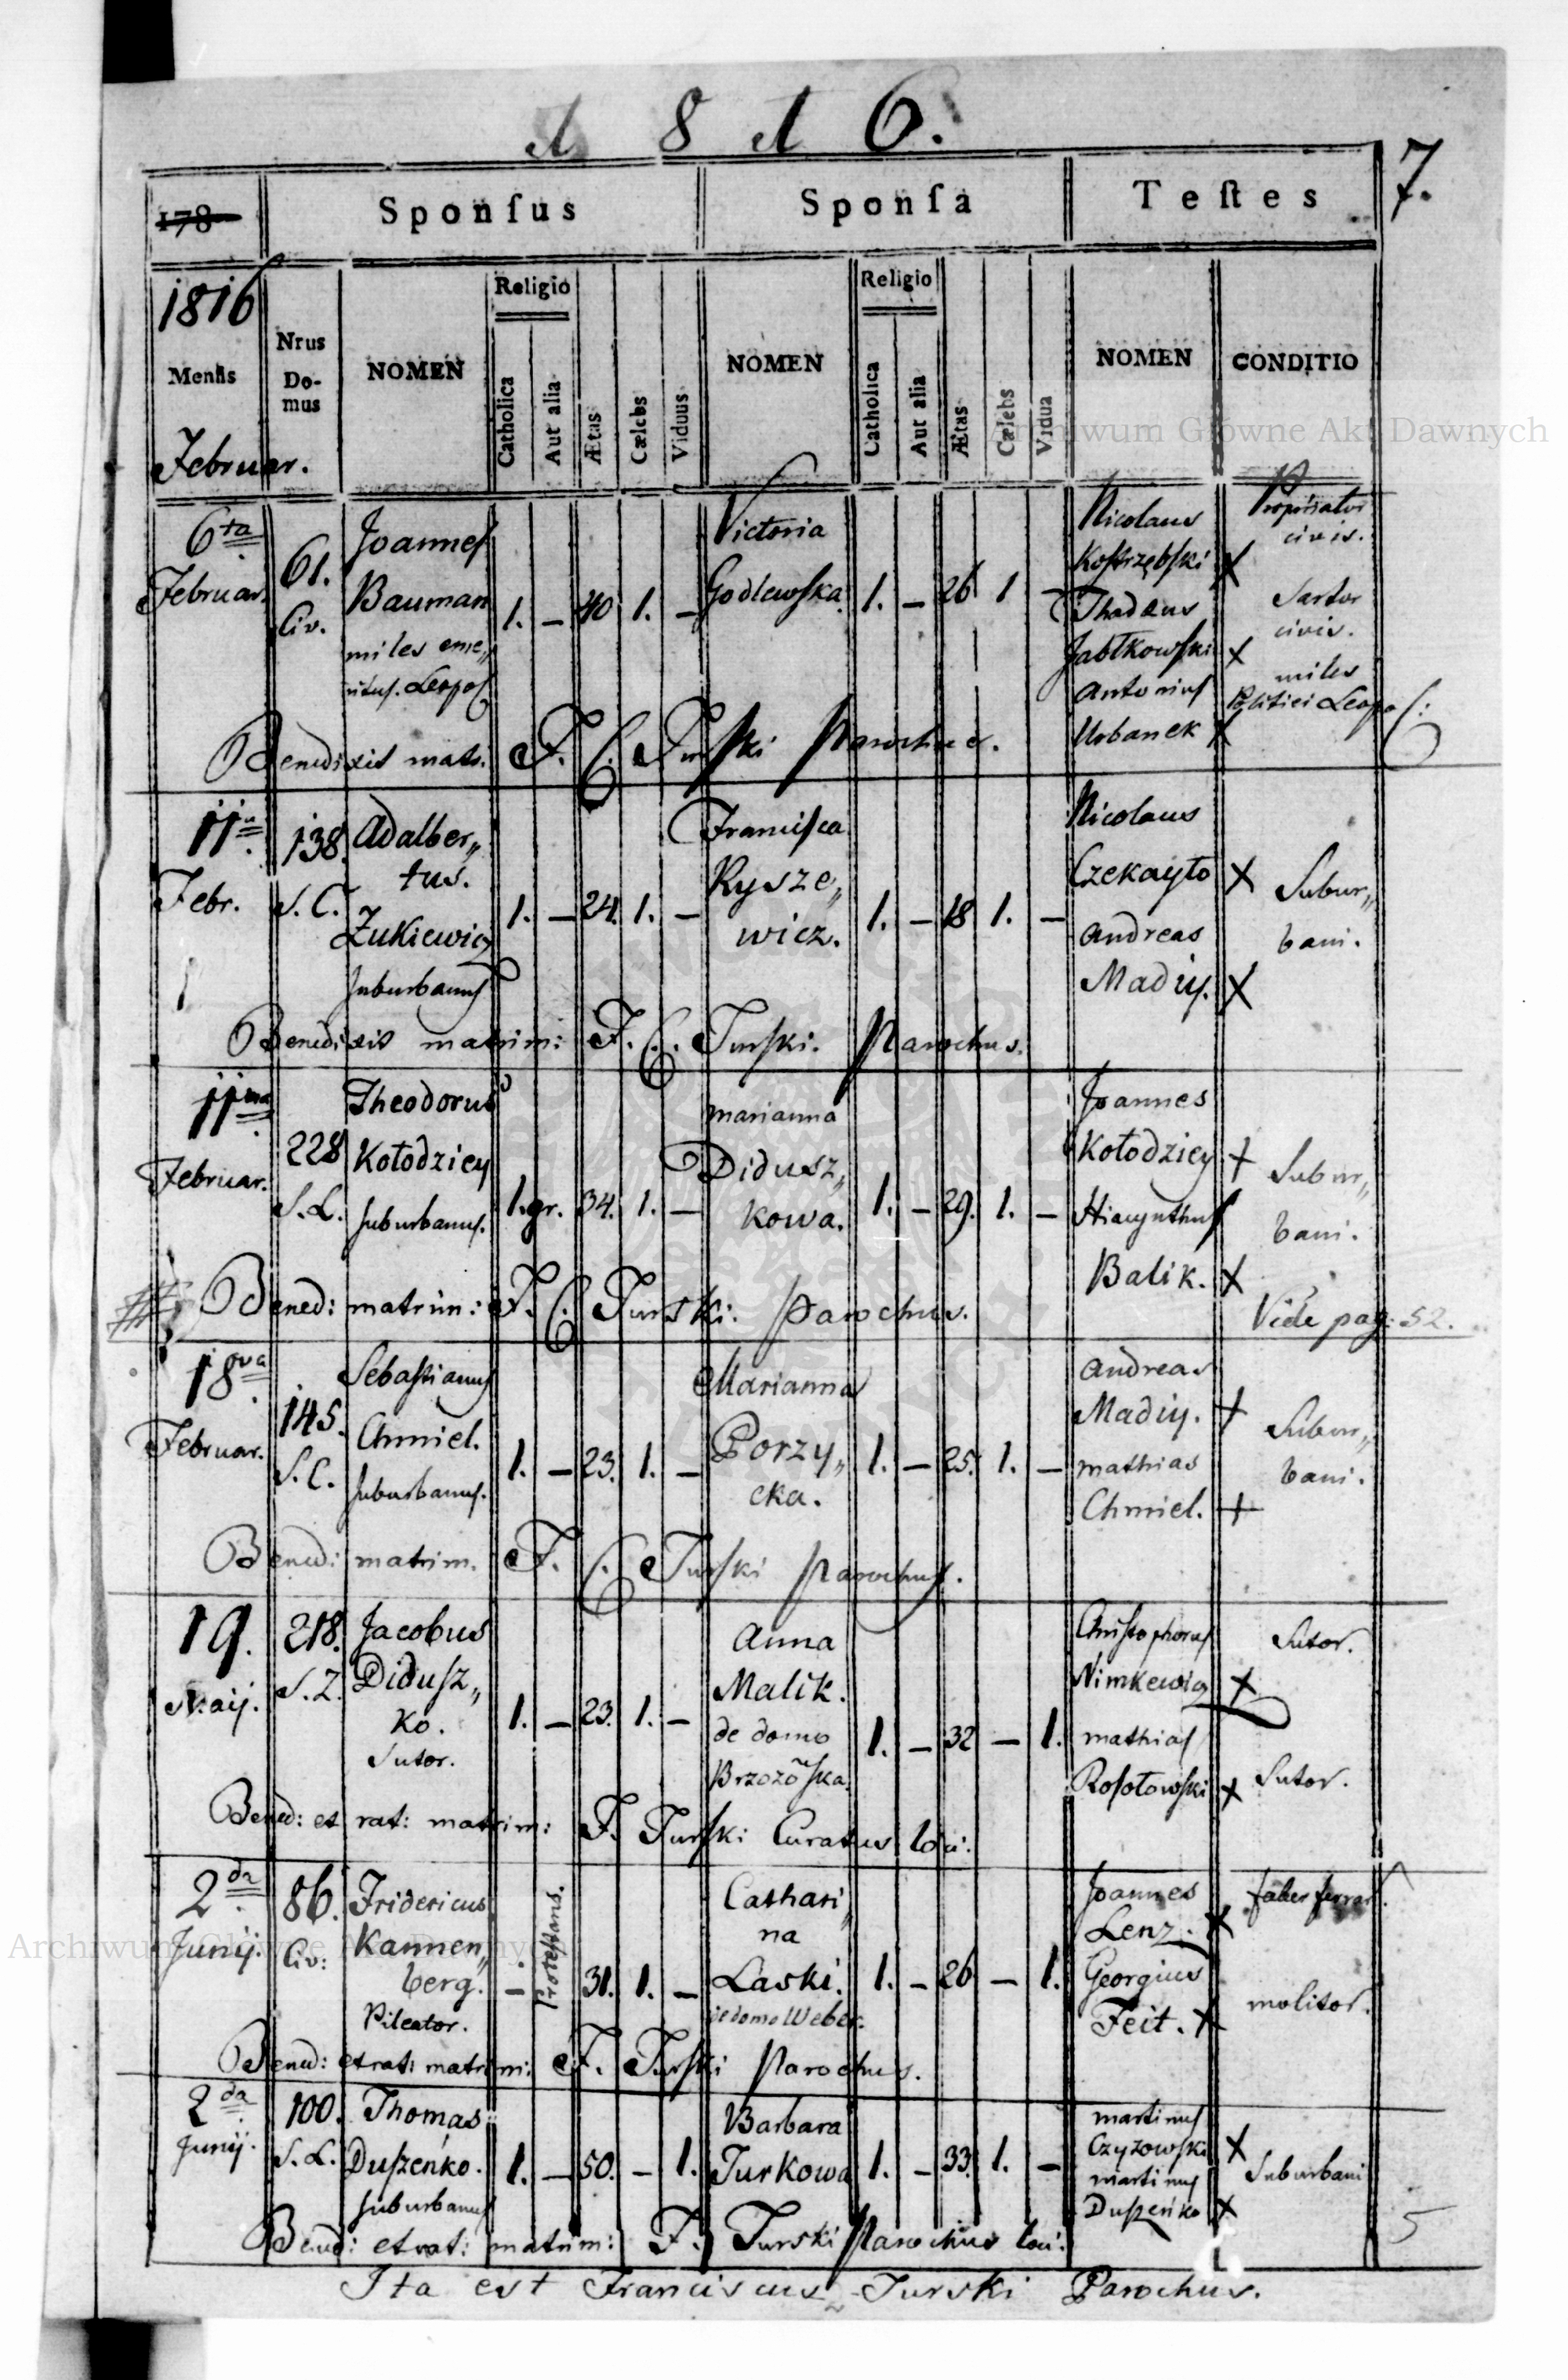 1 8 1 6.
7.
178 Sponſus Sponſa Teſtes
1816
Menſis
Februar.
Nrus Do-
mus
NOMEN
Religio
Catholica
Aut alia
Ætas
Cælebs
Viduus
NOMEN
Religio
Catholica
Aut alia
Ætas
Cælebs
Vidua
NOMEN
CONDITIO
Archiwum Główne Akt Dawnych
6ta
Februar.
61.
Civ.
Joannes
Bauman
miles eme„
ritus. Leopol
1. — 40 1. —
Victoria
Godlewska.
1. — 26 1 —
Nicolaus
Kostrzębski X
Thadæus
Jabłkowski X
Antonius
Urbanek X
Propinator
civis.
Sartor
civis.
miles
Politiei Leopol:
Benedixit matr. F. C. Turski Parochus.
11a
Febr.
138.
S. C.
Adalber„
tus.
Zukiewicz
suburbanus
1. — 24. 1. —
Francisca
Rysze„
wicz.
1. — 18 1. —
Nicolaus
Czekayło X
Andreas
Madiy. X
Subur„
bani.
Benedixit matrim: F. C. Turski. Parochus.
11ma
Februar.
228
S. L.
Theodorus
Kołodziey
suburbanus.
1. gr. 34. 1. —
Marianna
Didusz„
kowa.
1. — 29. 1. —
Joannes
Kołodziey +
Hiacynthus
Balik. X
Subur„
bani.
Bened: matrim: F. C. Turski. Parochus.
Vide pag: 52.
18va
Februar.
145.
S. C.
Sebastianus
Chmiel.
suburbanus.
1. — 23. 1. —
Marianna
Porzy„
cka.
1. — 25. 1. —
Andreas
Madiy. +
Mathias
Chmiel. +
Subur„
bani.
Bened: matrim. F. C. Turski Parochus.
19.
Maij.
218.
S. Z.
Jacobus
Didusz„
ko.
Sutor.
1. — 23. 1. —
Anna
Malik.
de domo
Brzozoska.
1. — 32 — 1.
Christophorus
Nimkewicz X
Mathias
Rosołowski X
Sutor.
Sutor.
Bened: et rat: matrim: F. Turski Curatus loci:
2da
Junij.
86.
Civ:
Fridericus
Kannen„
berg.
Pileator.
— Protestans. 31. 1. —
Cathari„
na
Laski.
de domo Weber.
1. — 26 — 1.
Joannes
Lenz. X
Georgius
Feit. X
faber ferrar.
molitor.
Archiwum Główne Akt Dawnych
Bened: et rat: matrim: F. Turski Parochus.
2da
Junij.
100.
S. L.
Thomas
Duszeńko.
suburbanus
1. — 50. — 1.
Barbara
Turkowa
1. — 33. 1. —
Martinus
Czyzowski X
Martinus
Duszeńko X
Suburbani
Bened: et rat: matrim: F. Turski Parochus loci:
5
Ita est Franciscus Turski Parochus.